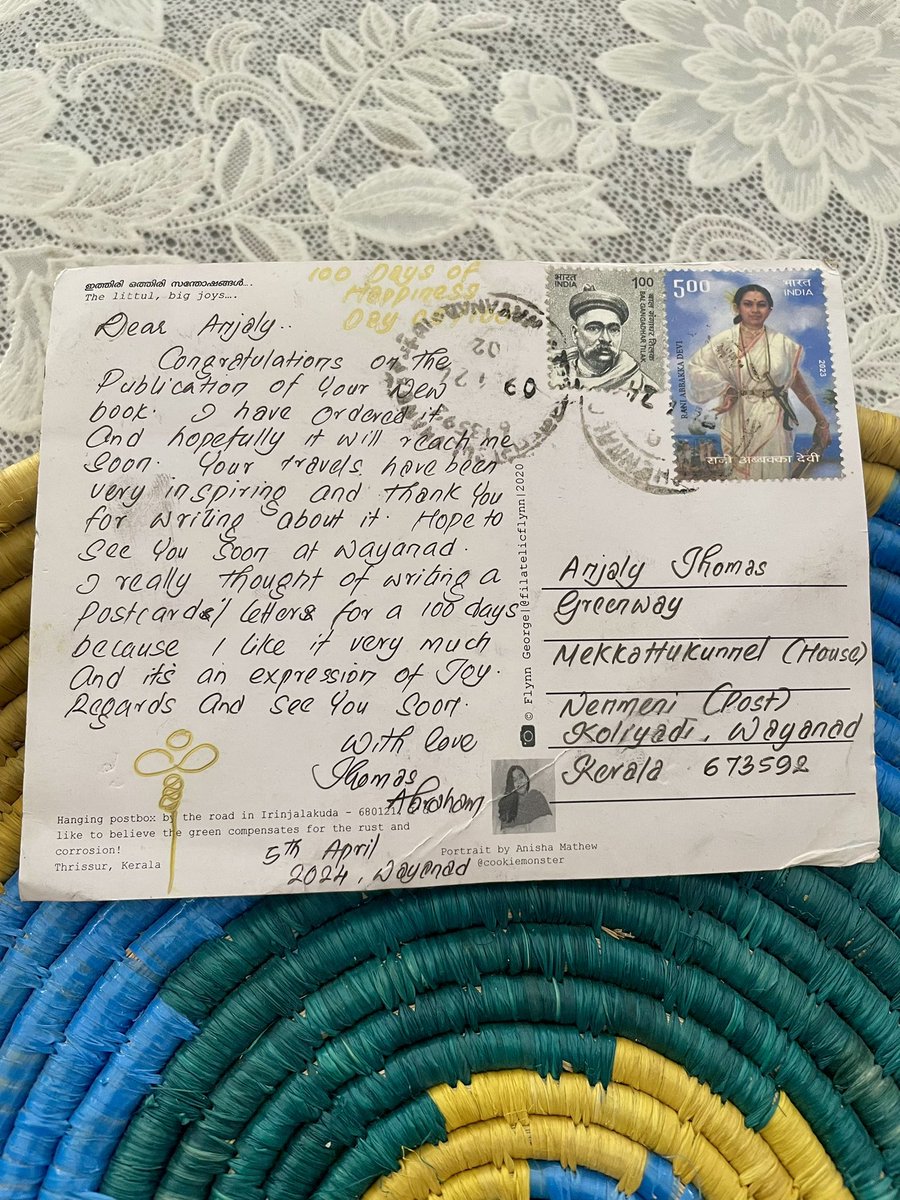 ഇത്തിരി ഒത്തിരി സന്തോഷങ്ങൾ...
The littul, big joys….
100 Days of
Happiness
Day
Dear Anjaly..
Congratulations on the
Publication of Your New
book. I have ordered it
And hopefully it will reach me
Soon. Your travels have been
very inspiring and Thank You
for writing about it. Hope to
See You Soon at Wayanad.
I really thought of writing a
Postcards/ letters for a 100 days
because I like it very much
And it's an expression of Joy.
Regards And See You Soon.
With love
Thomas
Abraham
Hanging postbox by the road in Irinjalakuda - 680121,
like to believe the green compensates for the rust and
corrosion!
Thrissur, Kerala
5th April
2024, Wayanad
Portrait by Anisha Mathew
@cookiemonster
© Flynn George|@filatelicflynn|2020
भारत
INDIA
1.00
बाल गंगाधर तिलक
BAL GANGADHAR TILAK
5.00
भारत
INDIA
RANI ABBAKKA DEVI
2023
रानी अब्बक्का देवी
Anjaly Thomas
Greenway
Mekkattukunnel (House)
Nenmeni (Post)
Koliyadi, Wayanad
Kerala 673592